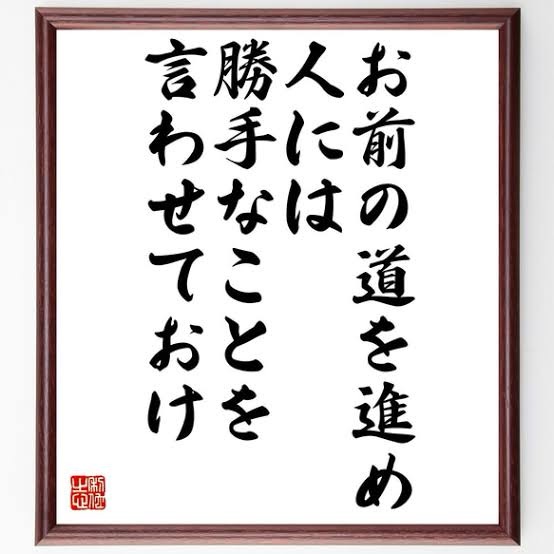 お前の道を進め
人には
勝手なことを
言わせておけ